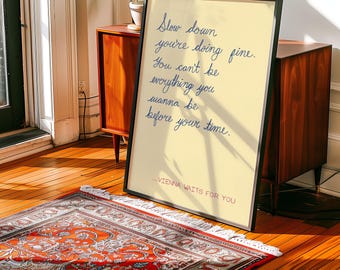 Slow down
you're doing fine.
You can't be
everything you
wanna be
before your time.
...VIENNA WAITS FOR YOU